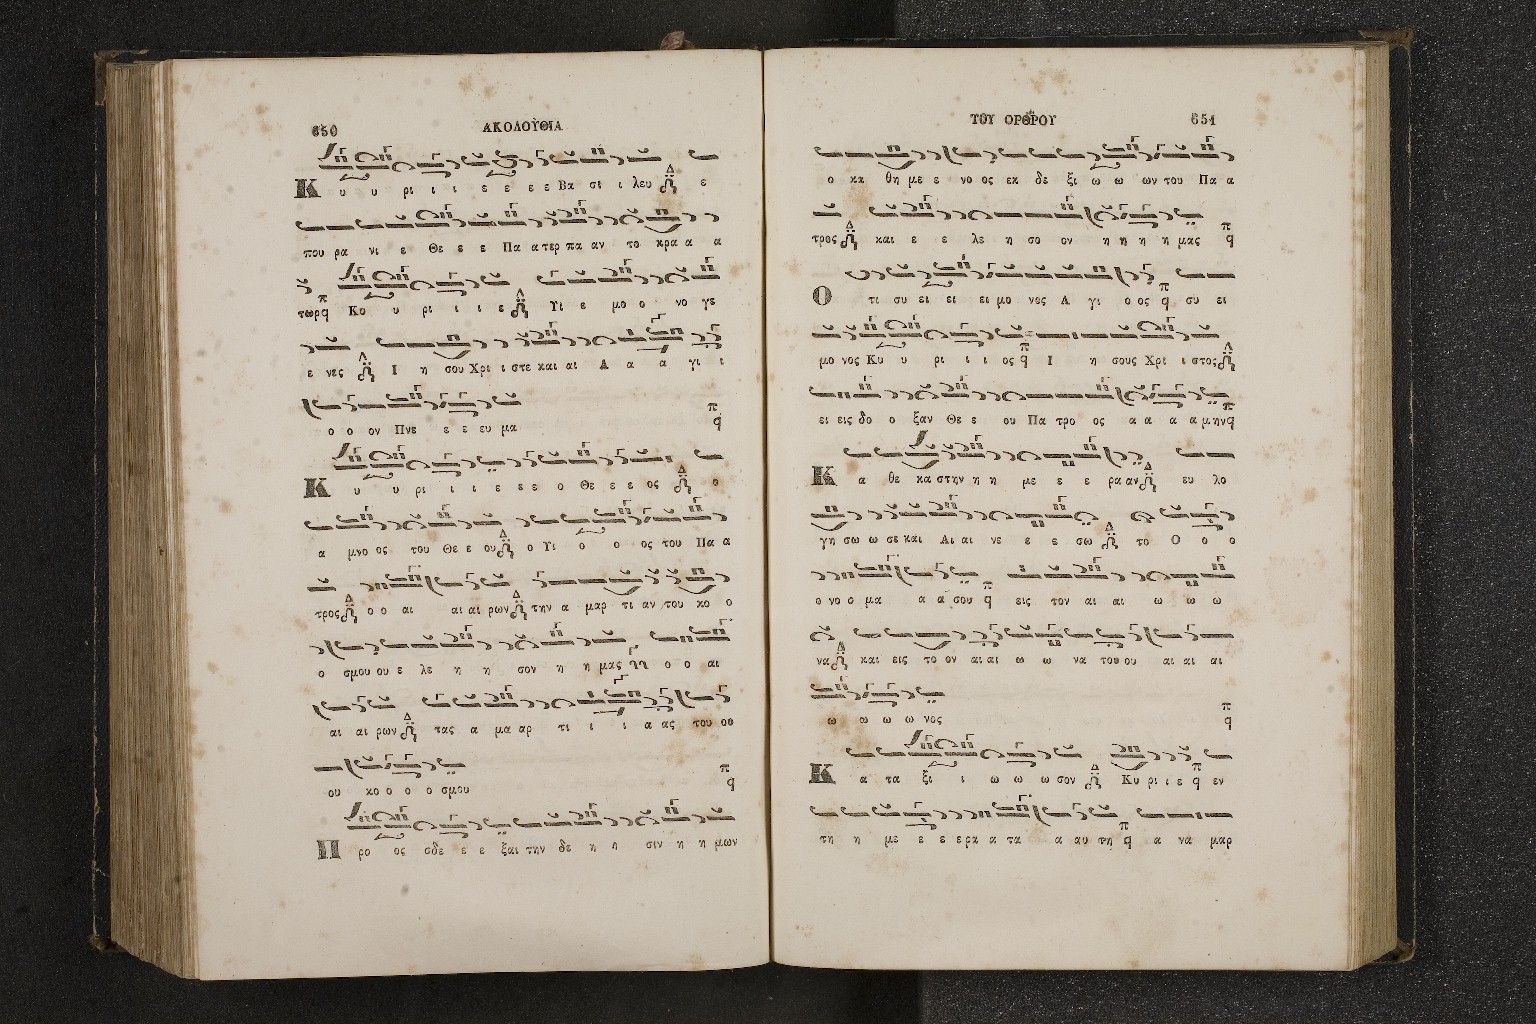 650 ΑΚΟΛΟΥΘΙΑ
Κ υ υ ρι ι ι ε ε ε ε Βα σι ι λευ ε
που ρα νι ε Θε ε ε Πα α τερ πα αν το κρα α α
τωρ Κυ υ ρι ι ι ε Υι ε μο ο νο γε
ε νες Ι η σου Χρι ι στε και αι Α α α γι ι
ο ο ον Πνε ε ε ευ μα
Κ υ υ ρι ι ι ε ε ε ο Θε ε ε ος ο
α μνο ος του Θε ε ου ο Υι ο ο ος του Πα α
τρος ο ο αι αι αι ρων την α μαρ τι αν του κο ο
ο σμου ου ε λε η η σον η η μας ο ο αι
αι αι ρων τας α μα αρ τι ι ι α ας του ου
ου κο ο ο ο σμου
Π ρο ος σδε ε ε ξαι την δε η η σιν η η μων
ΤΟΥ ΟΡΘΡΟΥ 651
ο κα θη με ε νο ος εκ δε ξι ω ω ων του Πα α
τρος και ε ε λε η σο ον η η η η μας
Ο τι συ ει ει ει μο νος Α γι ο ος συ ει
μο νος Κυ υ ρι ι ι ος Ι η σους Χρι ι στος
ει εις δο ο ξαν Θε ε ου Πα τρο ος α α α α μην
Κ α θε κα στην η η με ε ε ρα αν ευ λο
γη σω ω σε και Αι αι νε ε ε σω το Ο ο ο
ο νο ο μα α α σου εις τον αι αι ω ω ω
να και εις το ον αι αι ω ω να του ου αι αι αι
ω ω ω ω νος
Κ α τα ξι ι ω ω ω σον Κυ ρι ι ε εν
τη η με ε ε ε ρα α τα α αυ τη α να μαρ